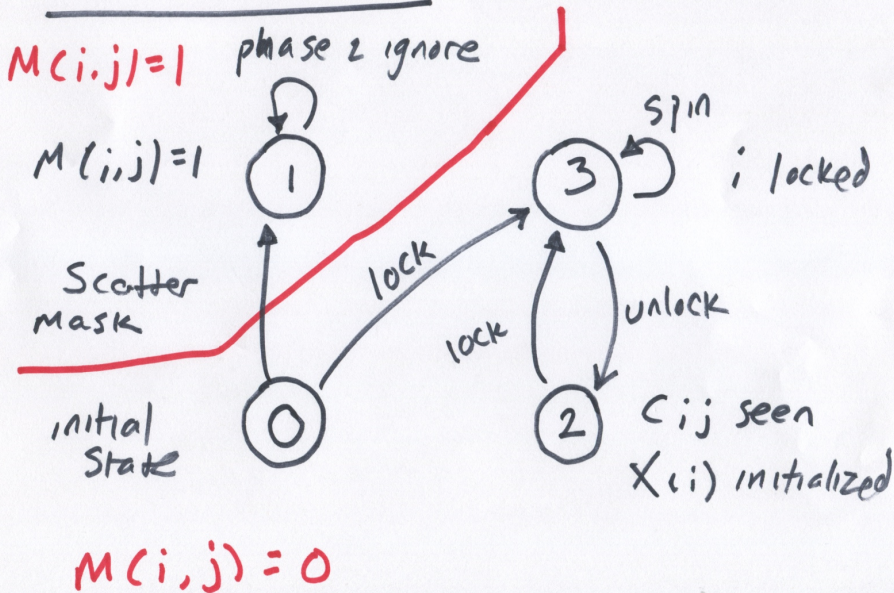 M(i,j)=1
phase 2 ignore
M(i,j)=1
1
spin
3
i locked
Scatter
mask
lock
lock
unlock
initial
State
0
2
Cij seen
X(i) initialized
M(i,j)=0